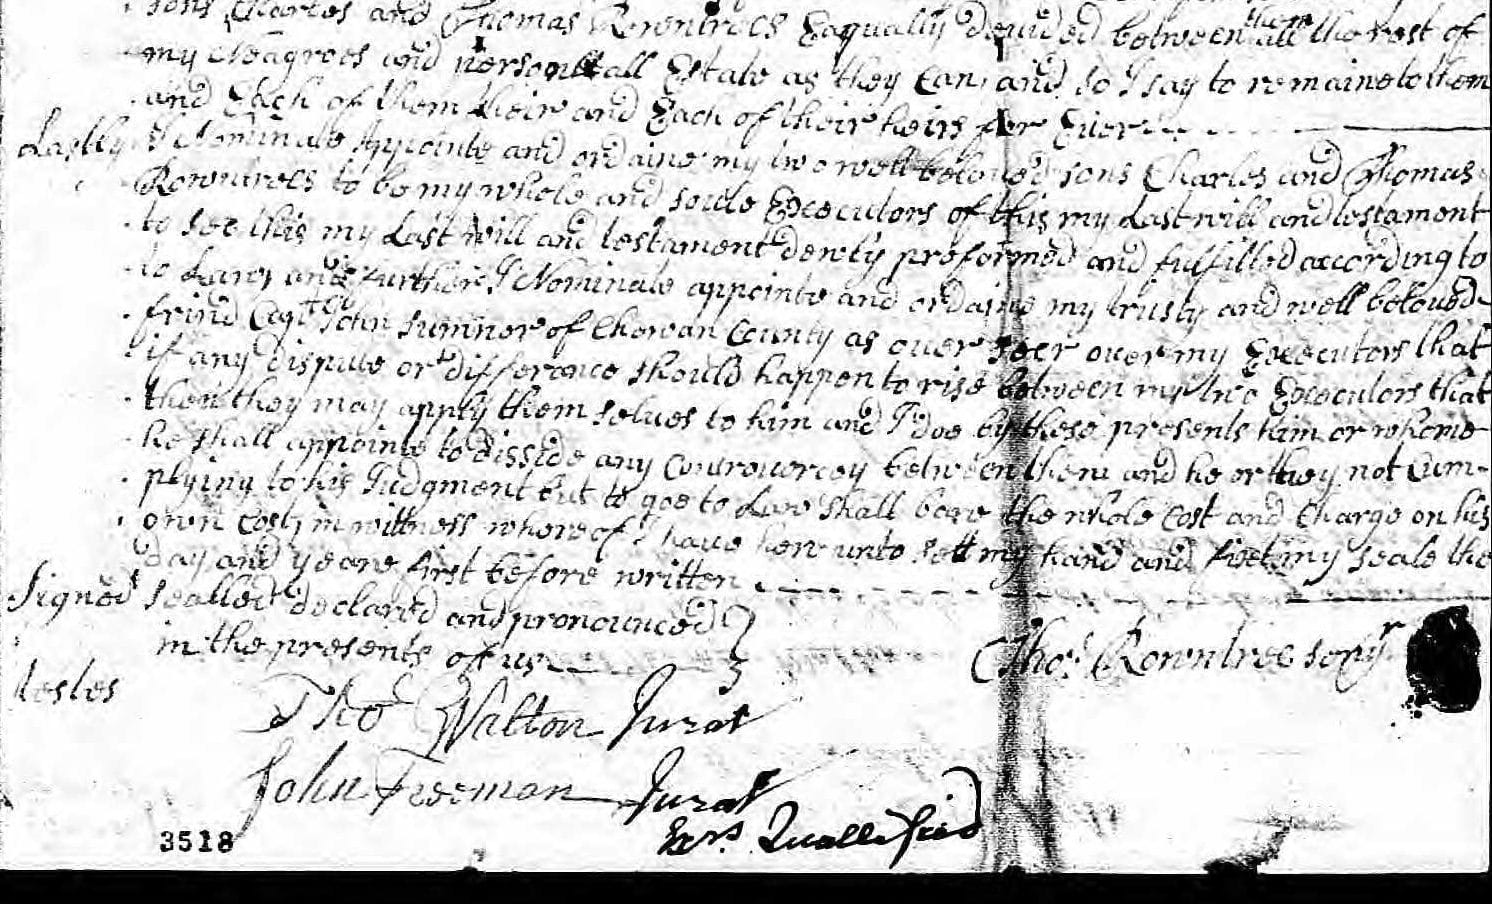 sons Charles and Thomas Rowntrees Eaqually devided between them all the rest of
my Neagroes and personall all Estate as they Can, and so I say to remaine to them
and Each of them their and Each of their heirs for Ever
Lastly I Nominate Appointe and ordaine my two well beloved sons Charles and Thomas
Rowntrees to be my whole and soule Executors of this my Last will and testament
to see this my Last Will and testament dewly preformed and fulfilled according to
to Law, and further I Nominate appointe and ordaine my trusty and well beloved
frind Capt John Sumnor of Chowan County as over seer over my Executors that
if any dispute or difference should happen to rise between my two Executors that
then they may apply them selves to him and I doe by these presents him or whome
he shall appointe to disside any Controvercey between them and he or they not Cum-
plying to his Judgment but to goe to Law shall bare the whole Cost and Charge on his
own Cost, in wittness whereof I have here unto sett my hand and fixt my seale the
day and yeare first before written
Signed sealled declared and pronounced
in the presents of us
Thos. Rowntree senyr
testes
Tho Walton Jurat
John Freeman Jurat
Exrs. Quallified
3518